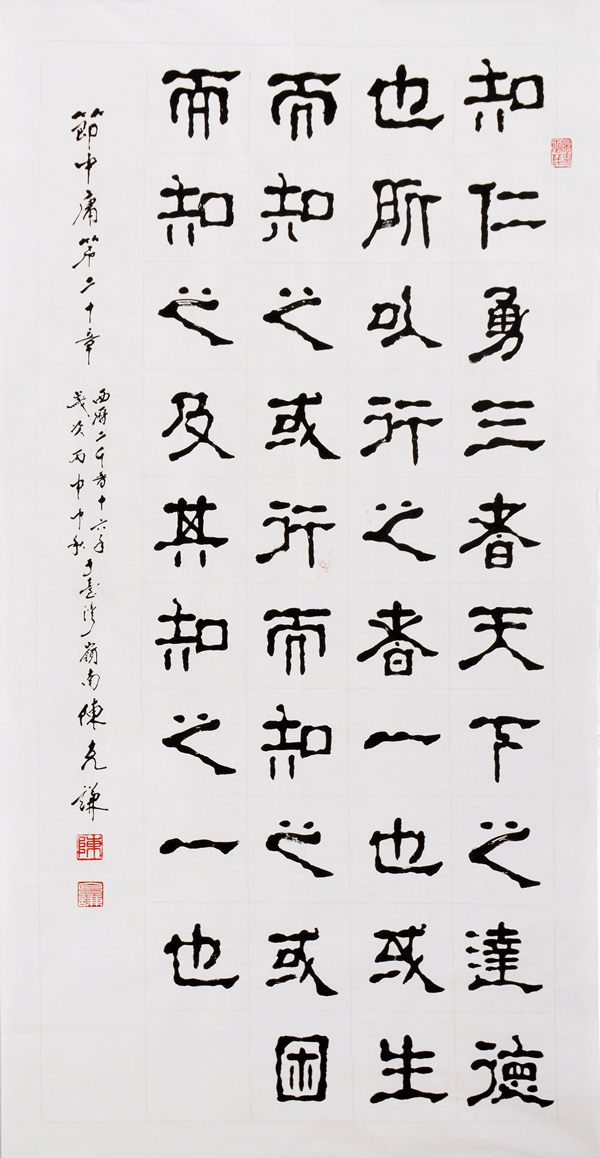 知仁勇三者天下之達德
也所以行之者一也或生
而知之或行而知之或困
而知之及其知之一也
節中庸第二十章
西曆二千零十六年
歲次丙申中秋
于臺灣嶺南陳謙
陳